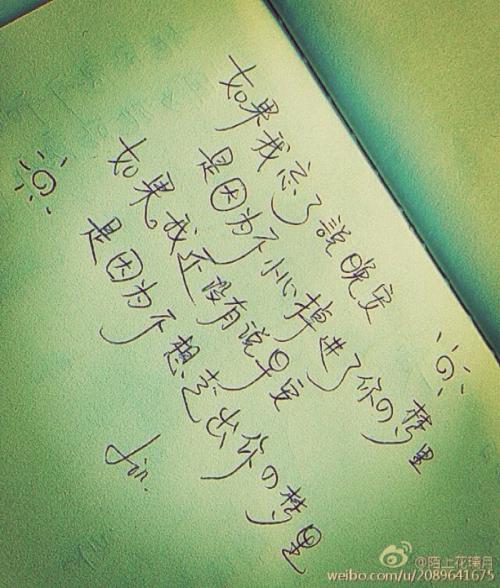 如果我忘了説晚安
是因为不小心掉进了你の梦里
如果我还没有说早安
是因为不想走出你の梦里
jin.
@陌上花瑾月
weibo.com/u/2089641675